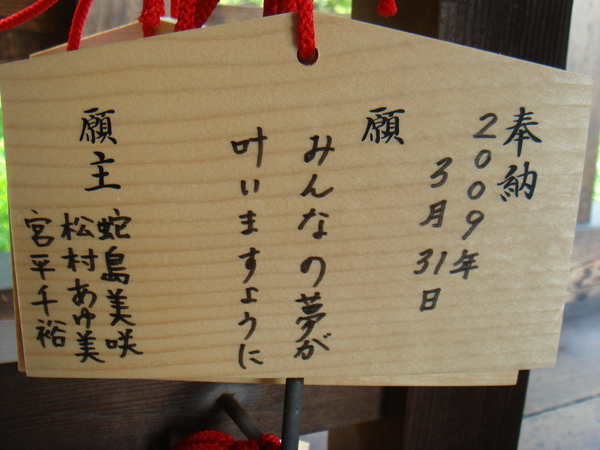 奉納
2009年
3月31日
願
みんなの夢が
叶いますように
願主
蛇島美咲
松村あゆ美
宮平千裕